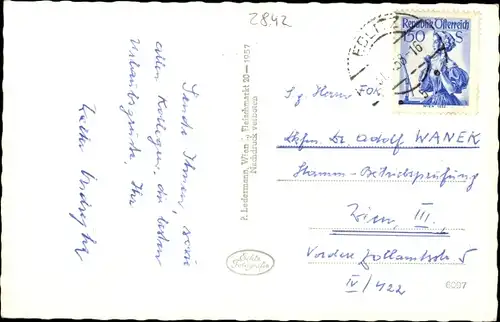 2842
Sende Ihnen, sowie
allen Kollegen, die besten
Urlaubsgrüße, Ihr
P. Ledermann, Wien I, Fleischmarkt 20—1957
Nachdruck verboten
Echte
Fotografie
EDLITZ
Republik Österreich
150 S
S. g. Herrn FOK
Dr. Adolf WANEK
Stamm-Betriebsprüfung
Wien, III.
Vordere Zollamtstr. 5
IV/422
6097